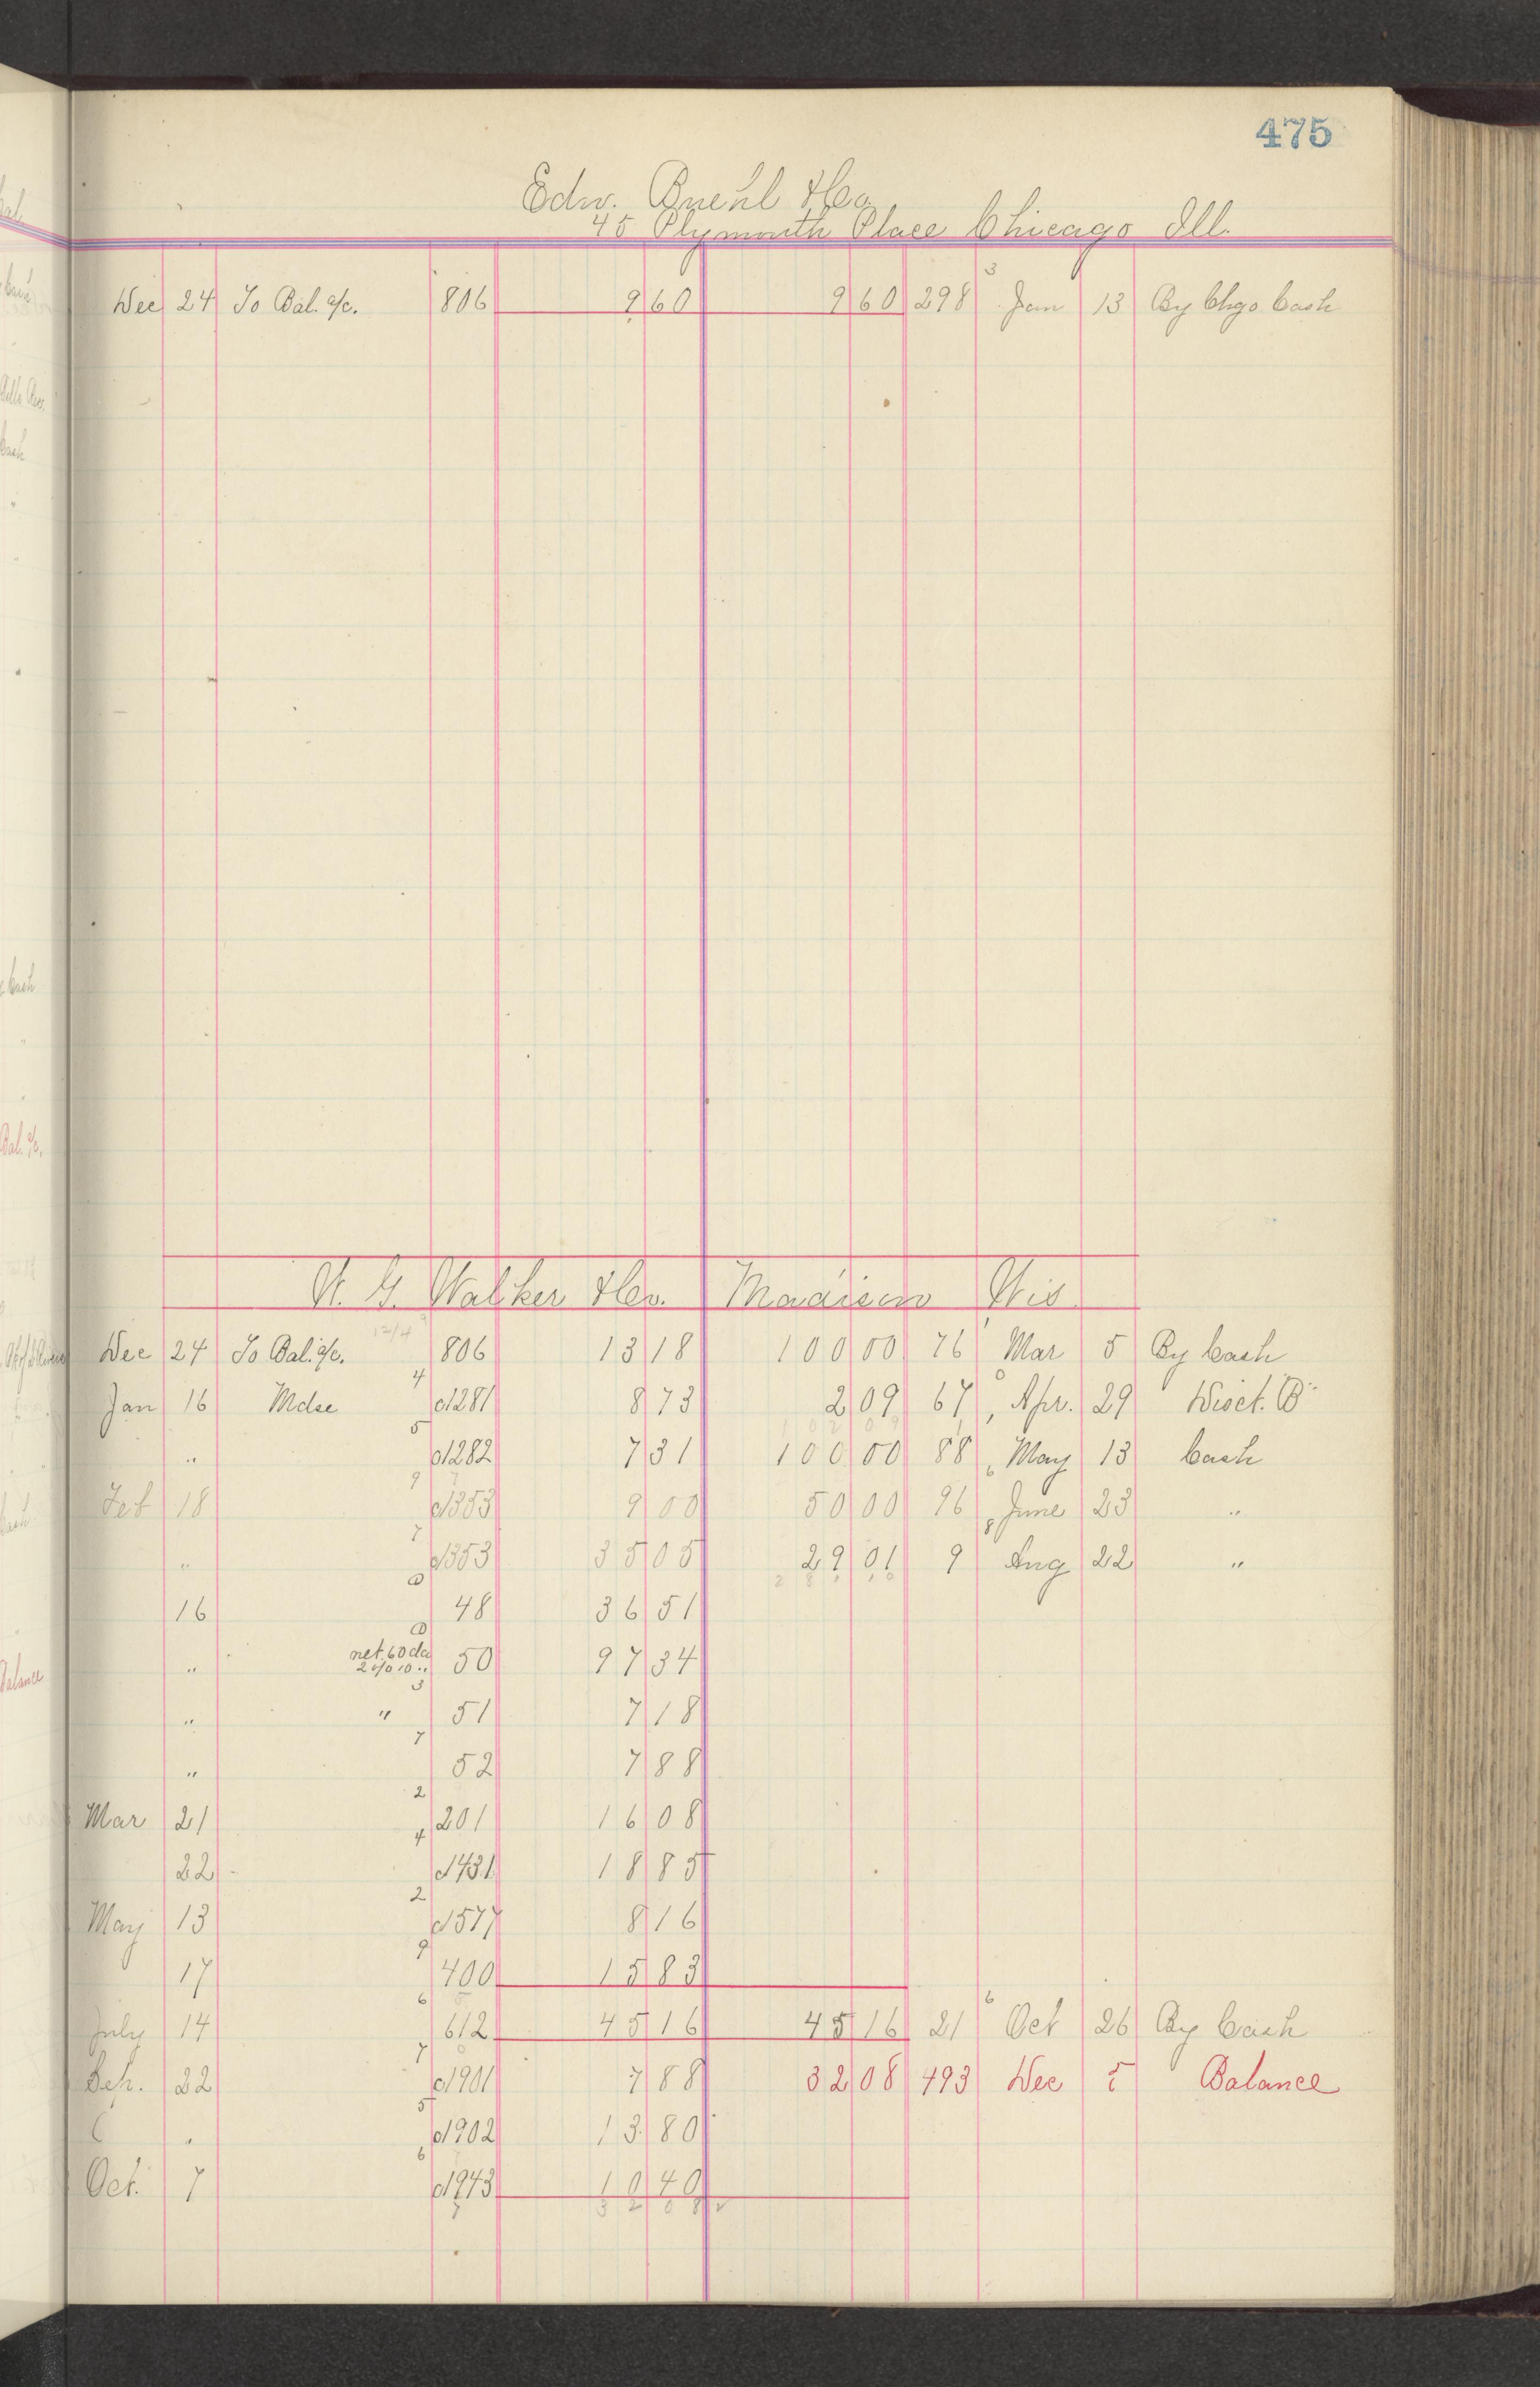 475
Edw. Buehl & Co
45 Plymouth Place Chicago Ill.
Dec 24 To Bal. a/c. 806 9 60 9 60 298 3 Jan 13 By Chgo Cash
Walker & Co. Madison Wis
Dec 24 To Bal. a/c. 806 13 18 100 00 76 Mar 5 By Cash
Jan 16 Mdse 4 c1281 8 73 2 09 67 Apr. 29 Disct. B
" 5 c1282 7 31 100 00 88 May 13 Cash
Feb 18 9 c1353 9 00 50 00 96 June 23 "
" 7 c1353 35 05 29 01 9 Aug 22 "
16 48 36 51
" net 60 da 2 % 10 " 50 97 34
" " 3 51 7 18
" 7 52 7 88
Mar 21 2 201 16 08
22 4 c1431 18 85
May 13 2 c1577 8 16
17 9 400 15 83
July 14 6 612 45 16 45 16 21 6 Oct 26 By Cash
Sep. 22 7 c1901 7 88 32 08 493 Dec 5 Balance
" 5 c1902 13 80
Oct. 7 6 c1943 10 40
32 08